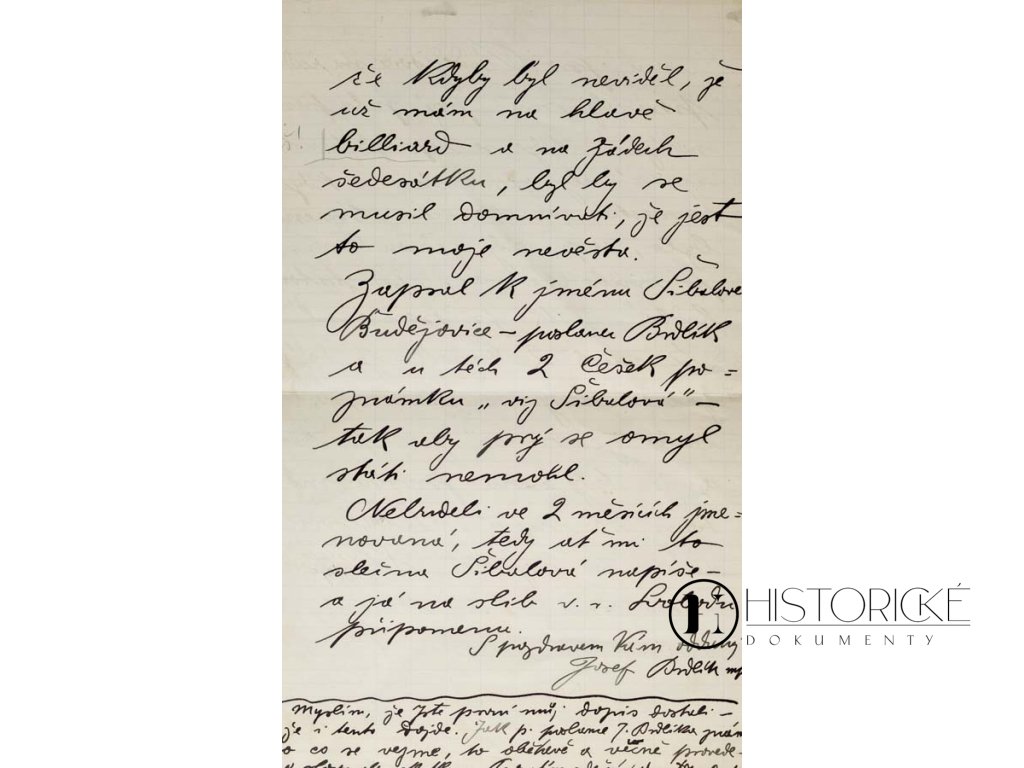 že kdyby byl neviděl, že
už mám na hlavě
billiard a na zádech
šedesátku, byl by se
musil domnívati, že jest
to moje nevěsta.
Zapsal k jménu Šibalové
Budějovice – poslanec Brdlík
a u těch 2 Češek po=
známku „viz Šibalová" –
tak aby prý se omyl
státi nemohl.
Nebudeli ve 2 měsících jme=
novaná, tedy ať mi to
slečna Šibalová napíše –
a já na slib v. r. Svobodu
připomenu.
S pozdravem Vám oddaný
Josef Brdlík mp
Myslím, že jste první můj dopis dostali –
že i tento dojde. Jak p. poslanec J. Brdlík
o co se vezme, to oběhově a věčně provede-
HISTORICKÉ
DOKUMENTY